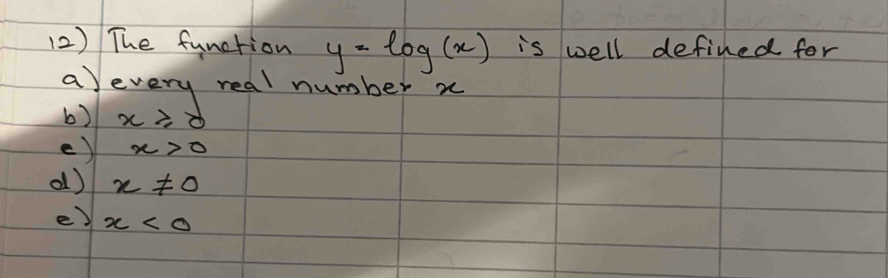 12) The function y = log(x) is well defined for
a) every real number x
b) x ⩾ 0
c) x > 0
d) x ≠ 0
e) x < 0